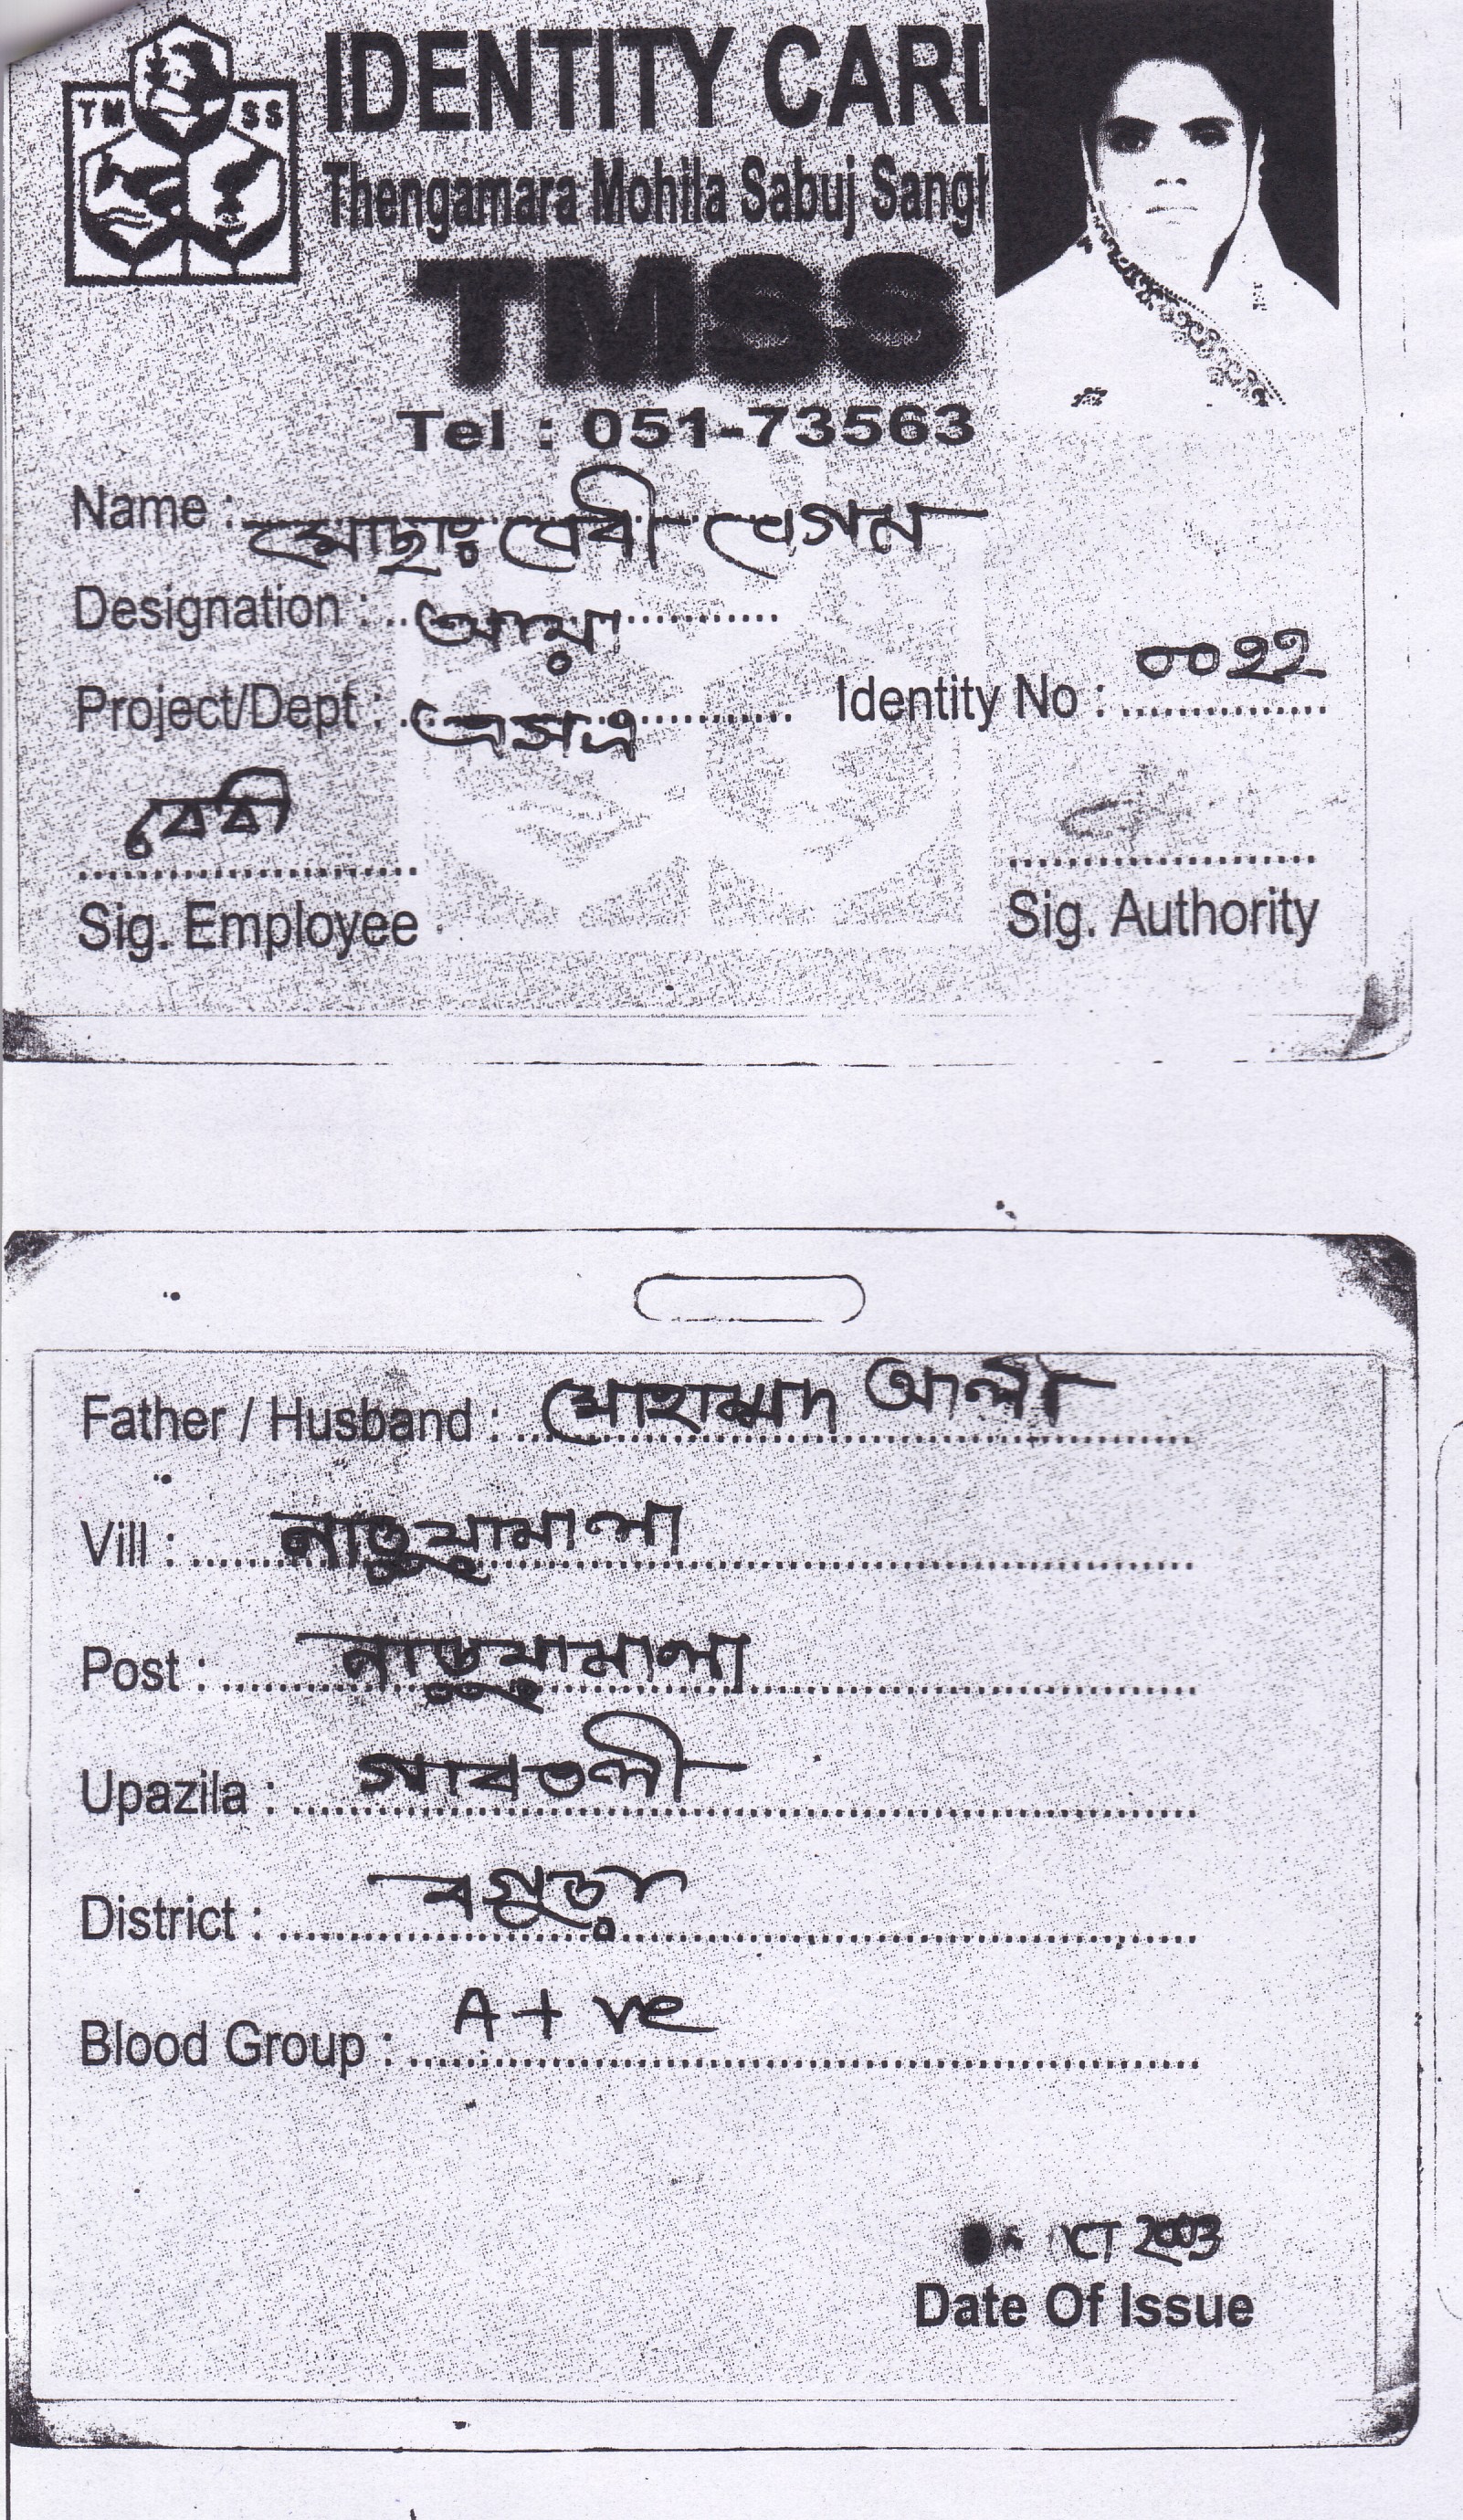 TM SS
IDENTITY CARD
Thengamara Mohila Sabuj Sangh
TMSS
Tel : 051-73563
Name : মোছাঃ বেবী বেগম
Designation : আয়া
Project/Dept :
Identity No : ০০২২
বেবী
Sig. Employee
Sig. Authority
Father / Husband : মোহাম্মদ আলী
Vill : নাড়ুয়ামালা
Post : নাড়ুয়ামালা
Upazila : গাবতলী
District : বগুড়া
Blood Group : A+ ve
2003
Date Of Issue